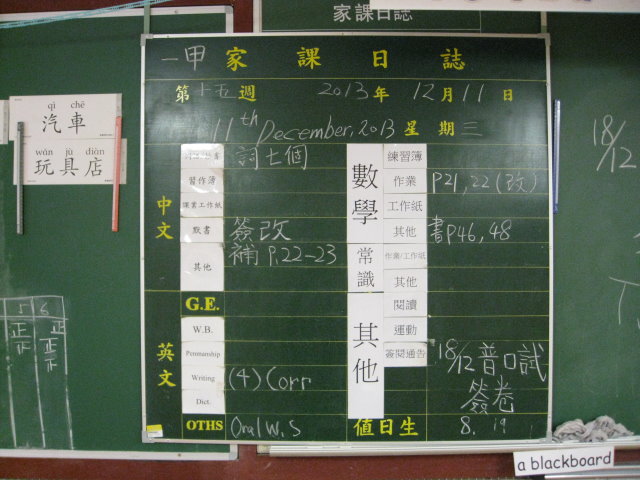 家課日誌
一甲家課日誌
第十五週 2013年 12月 11日
11th December, 2013 星期三
qì chē
汽車
wán jù diàn
玩具店
中文
詞七個
習作簿
課業工作紙
默書 簽改
其他 補 P.22-23
G.E.
英文
W.B.
Penmanship
Writing (4) Corr
Dict.
OTHS Oral W.S
數學
練習簿
作業 P21,22(改)
工作紙
其他 書P46,48
常識
作業/工作紙
其他
其他
閱讀
運動
簽閱通告 18/12 普口試
簽卷
值日生 8. 19
18/12
5 6
正 正
正 正
a blackboard